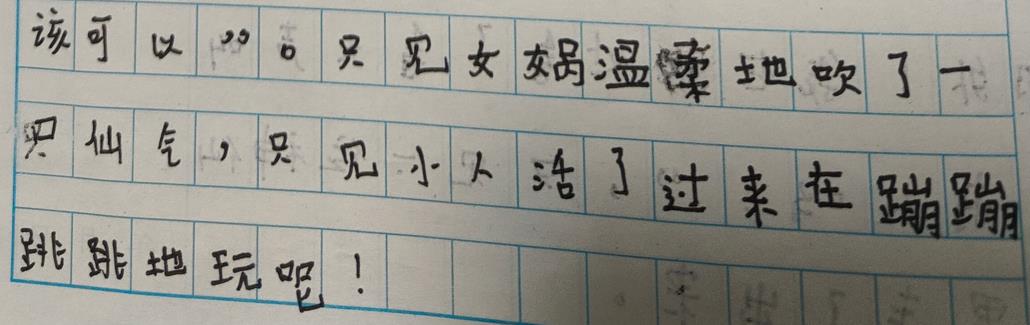 该可以”。只见女娲温柔地吹了一
只仙气，只见小人活了过来在蹦蹦
跳跳地玩吧！